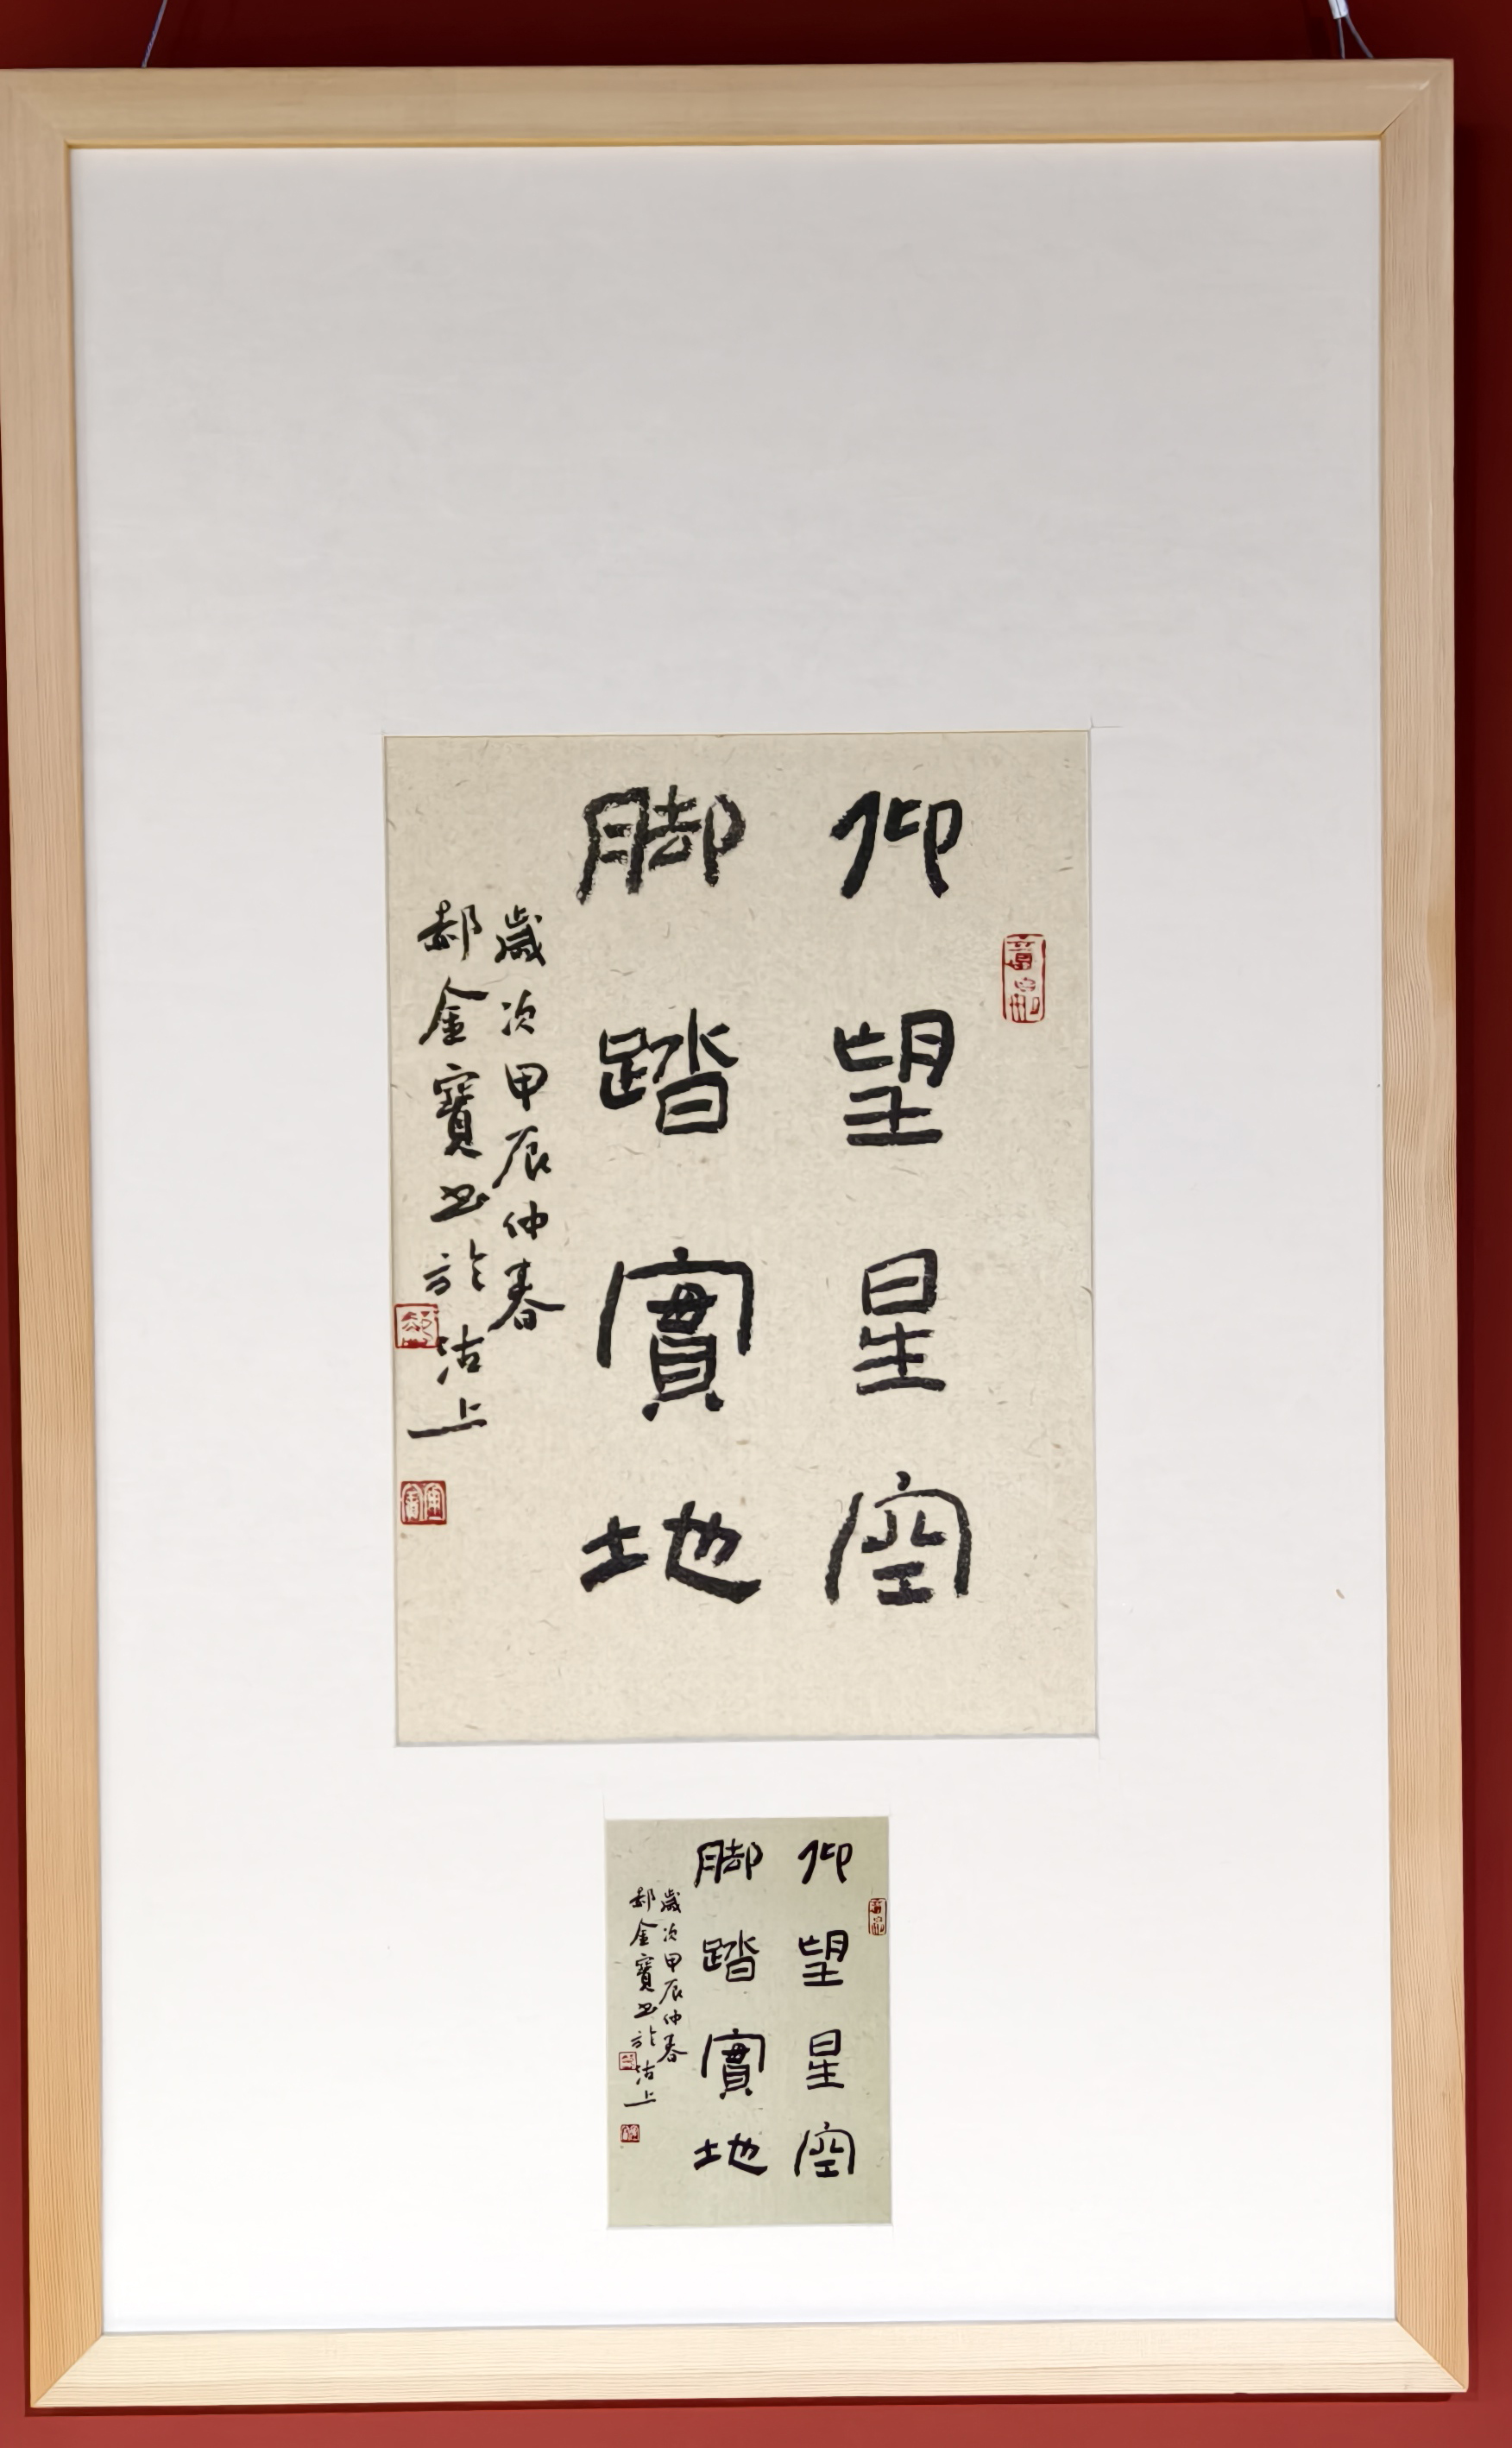 仰望星空
脚踏實地
歲次甲辰仲春
郝金寶书於沽上
仰望星空
脚踏實地
歲次甲辰仲春
郝金寶书於沽上